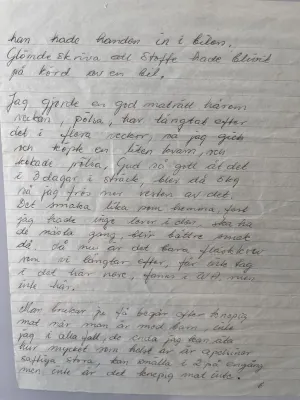 han hade handen in i bilen.
Glömde skriva att Stoffe hade blivit
på körd av en bil.
Jag gjorde en god maträtt häromm
veckan, pölsa, har längtat efter
det i flera veckor, så jag gick
och köpte en liten burk, och
kokade pölsa. Gud så gott åt det
i 3 dagar i sträck blev då
så jag frös ner resten av det.
Det smaka lika som hemma, fast
jag hade inge i
de nästa gång, blir bättre smak
då. Så nu är det bara
som vi längtar efter, får inte tag
i det här nere, fanns i men
inte här.
Man brukar ju få begär efter knepig
mat när man är med barn, inte
jag i alla fall, de enda jag kan äta
hur mycket som helst är är apelsiner
saftiga stora, kan smälla i 2 på en gång
men inte är det knepig mat inte.